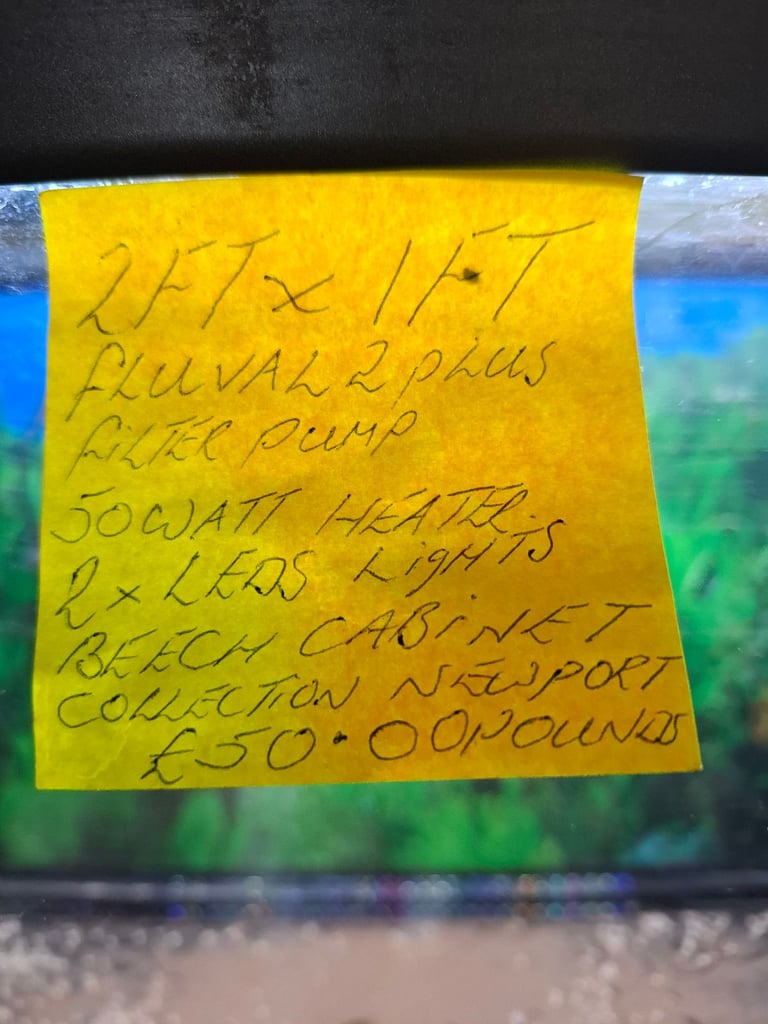 2FT x 1FT
FLUVAL 2 PLUS
FILTER PUMP
50WATT HEATER.
2x LEDS LIGHTS
BEECH CABINET
COLLECTION NEWPORT
£50.00POUNDS